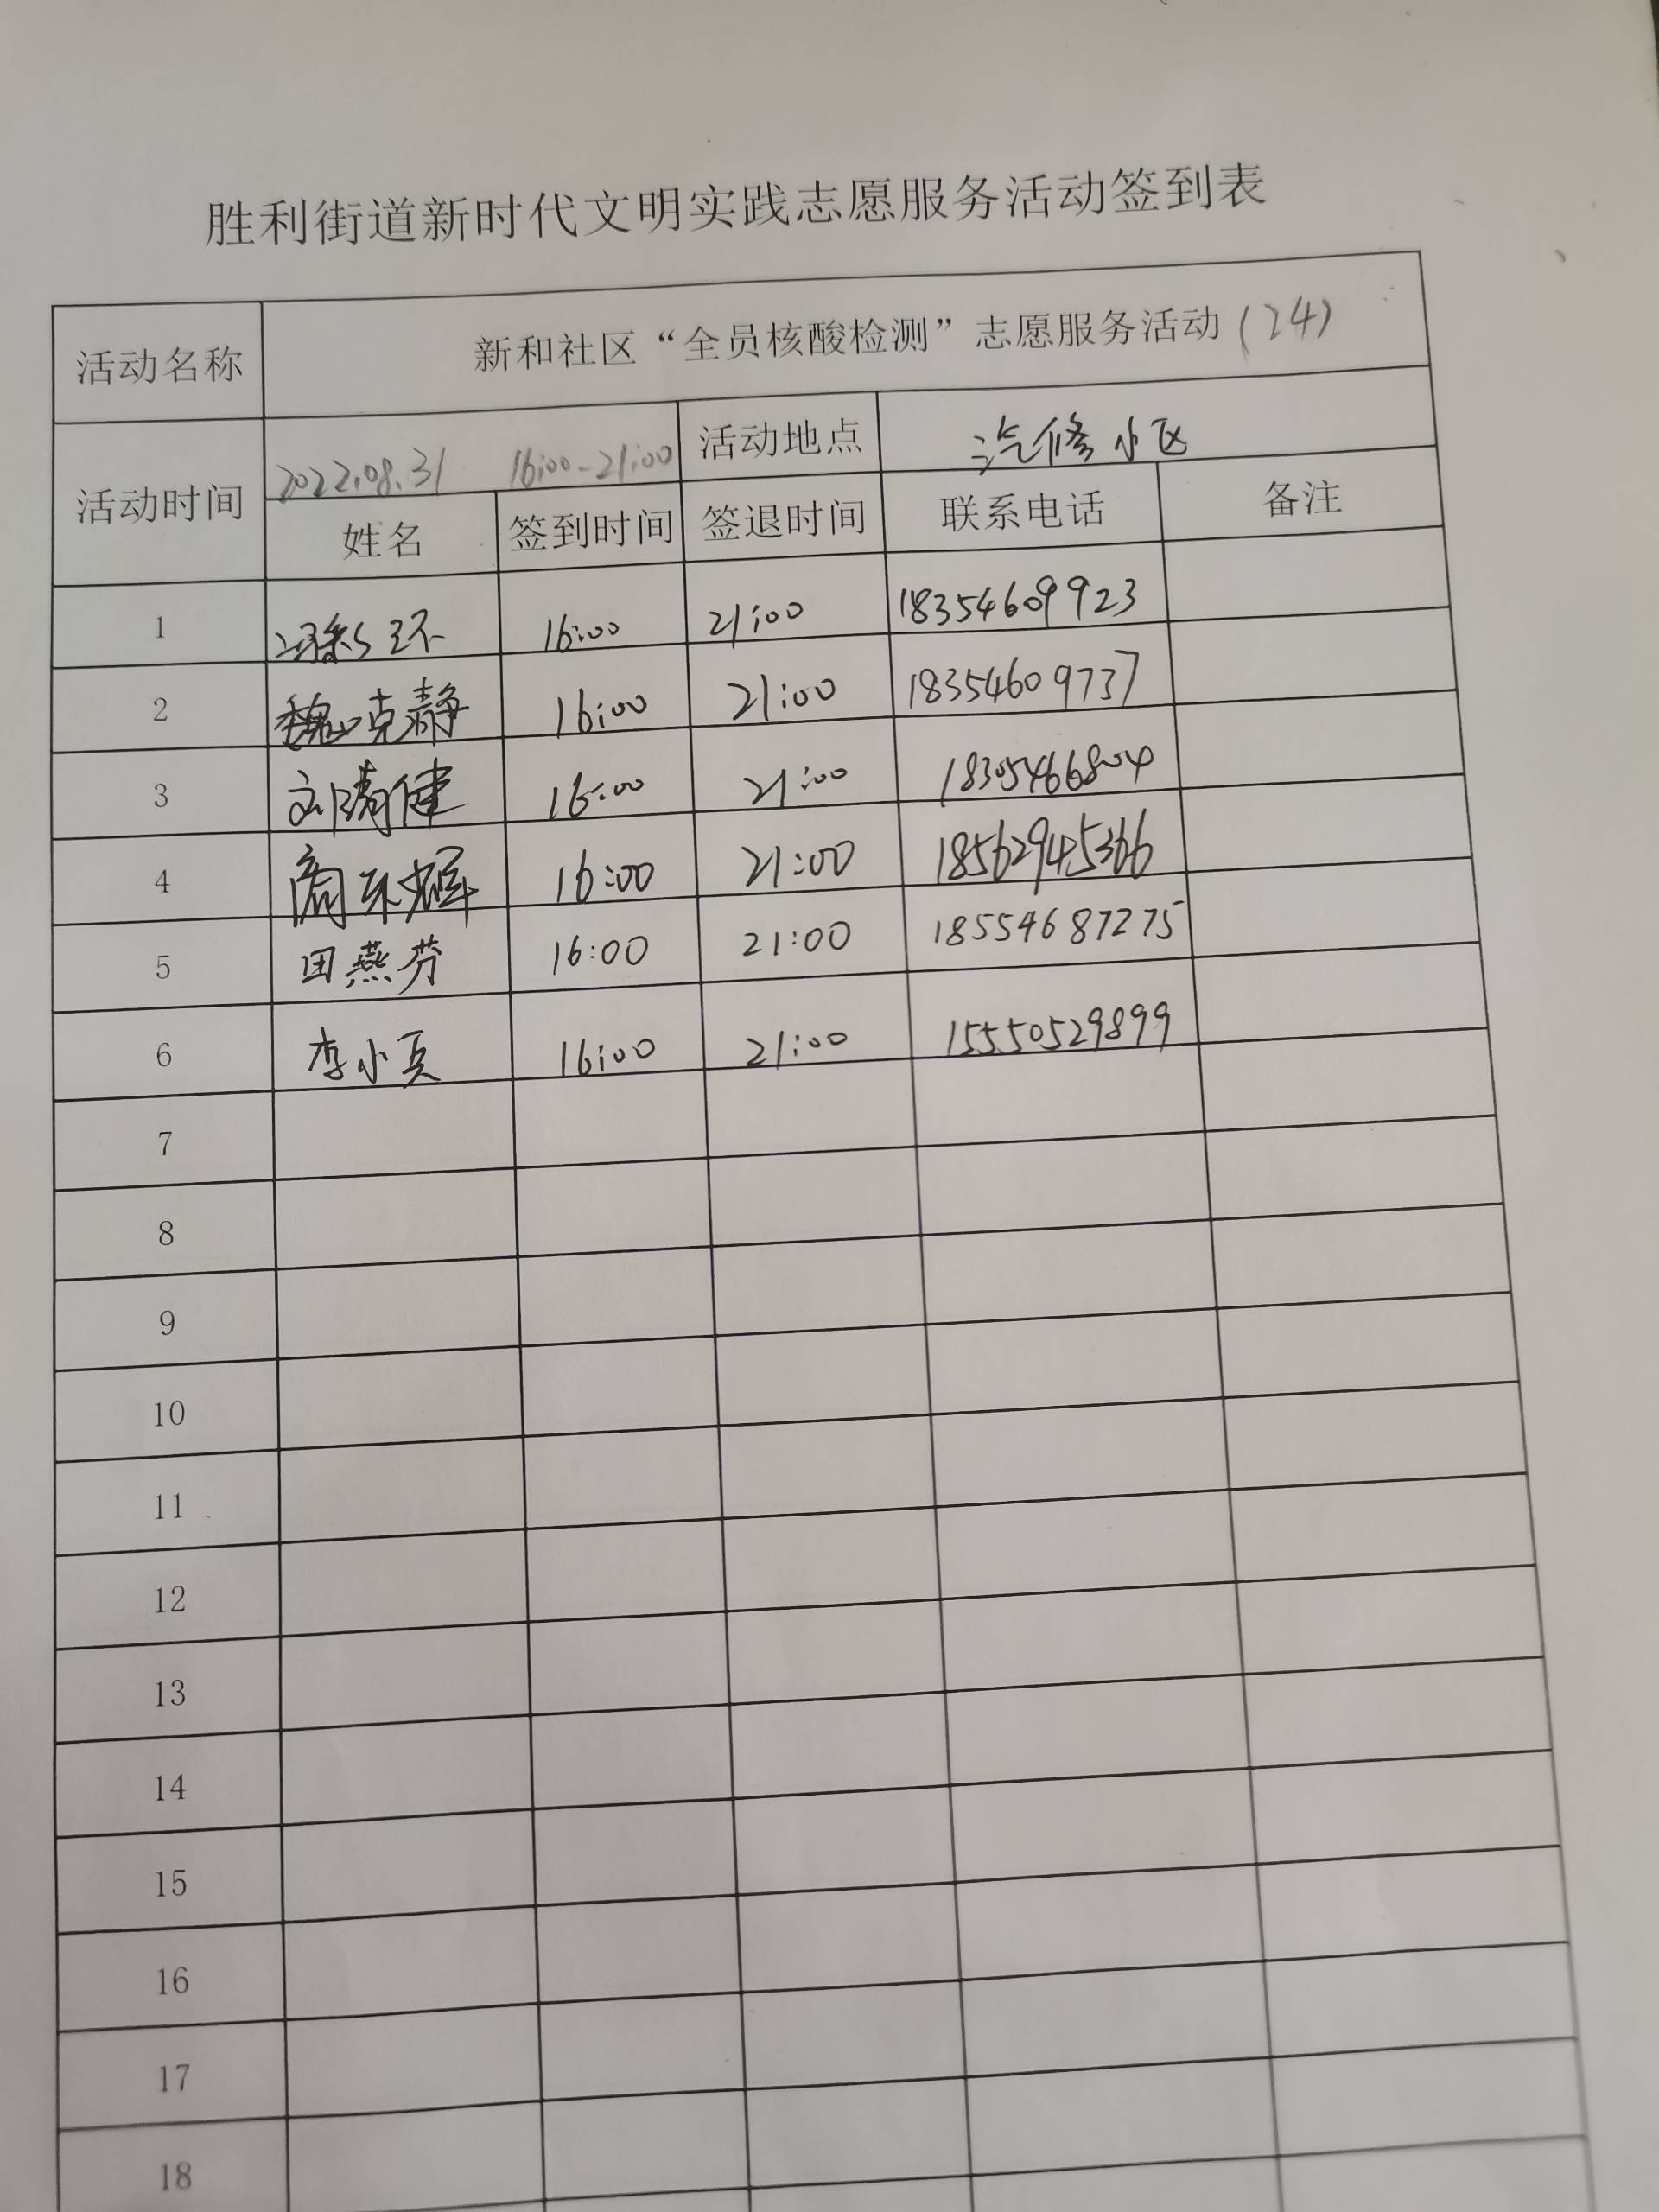 胜利街道新时代文明实践志愿服务活动签到表
活动名称 新和社区“全员核酸检测”志愿服务活动(24)
活动时间 2022.08.31 16:00-21:00 活动地点 汽修小区
姓名 签到时间 签退时间 联系电话 备注
1 16:00 21:00 18354609923
2 魏克静 16:00 21:00 18354609737
3 刘清健 16:00 21:00 18305466804
4 16:00 21:00 18562945366
5 田燕芬 16:00 21:00 18554687275
6 李小夏 16:00 21:00 15550529899
7
8
9
10
11
12
13
14
15
16
17
18